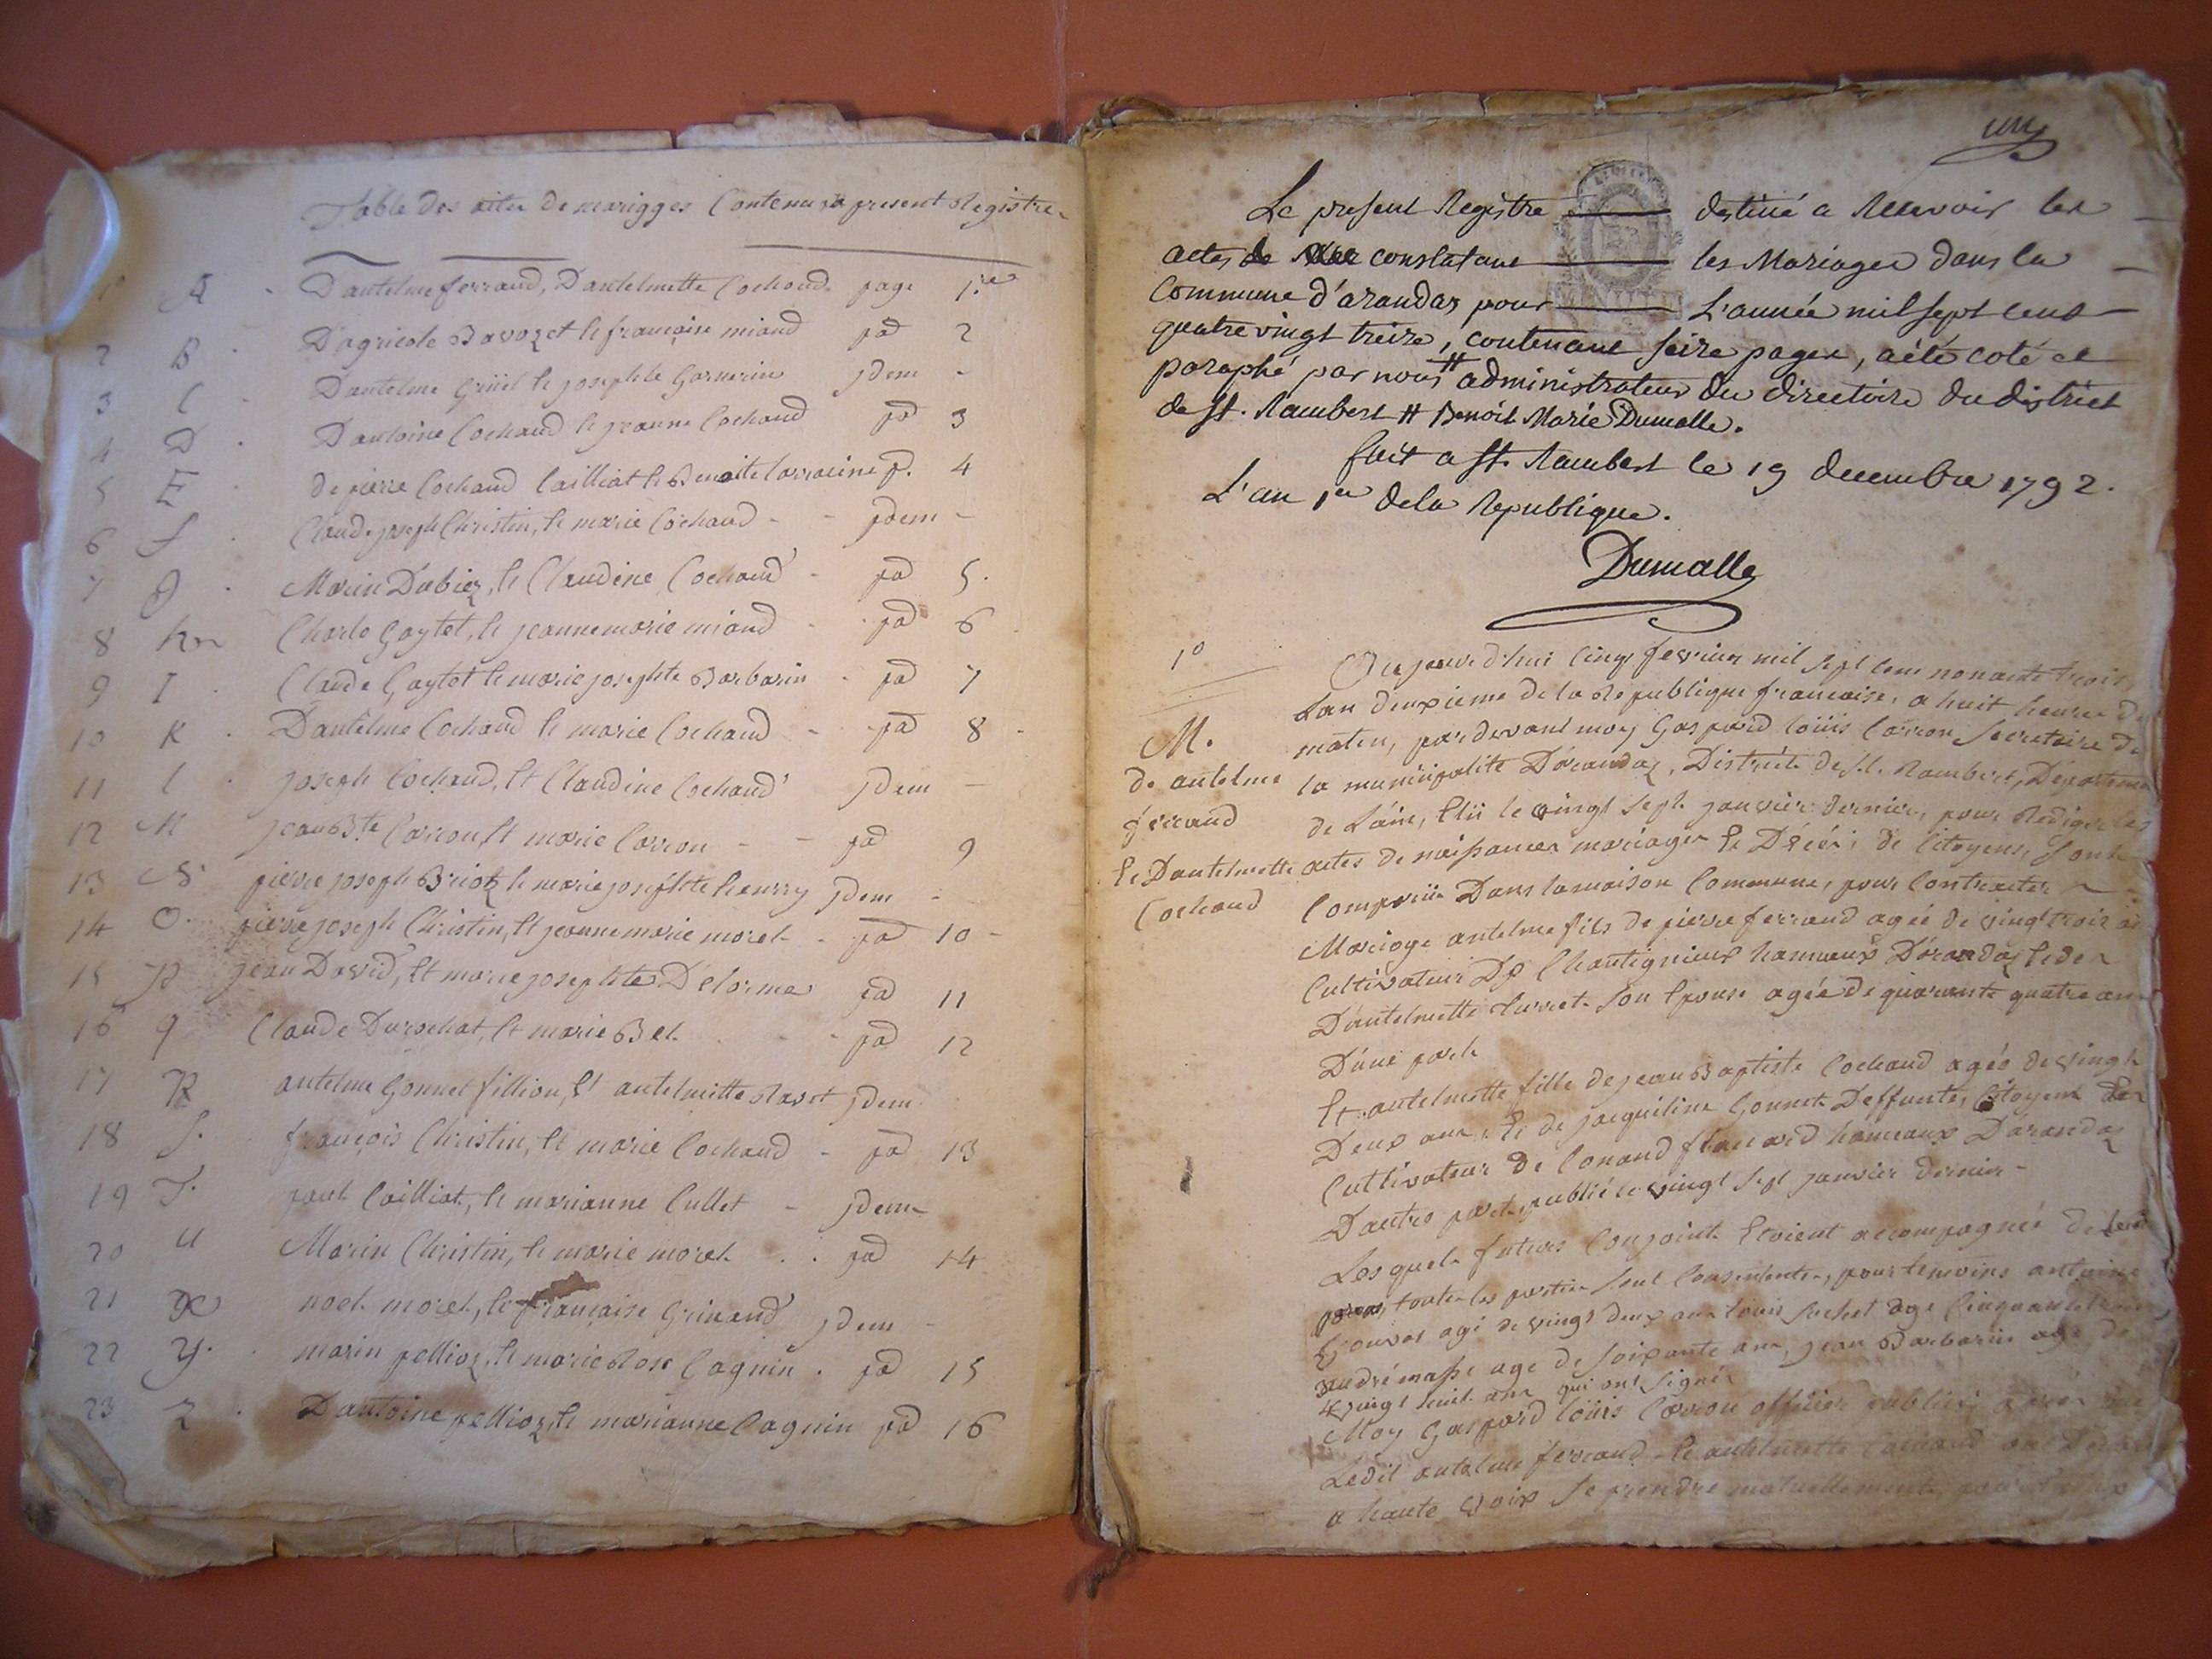 Table des actes de mariages Contenus present Registre
1 A - D'antelme ferrand, D'antelmette Cochand page 1.re
2 B - D'agricole Bavoz et de françoise miand pad 2
3 C - D'antelme et josephte Garnerin jdem -
4 D - D'antoine Cochand et jeanne Cochand pad 3
5 E - de pierre Cochand Cailliat et Benoite p. 4
6 f - Claude joseph Christin, et marie Cochand - - jdem -
7 g - Marin Dubiez, et Claudine Cochand - pad 5.
8 h Charle Gaytet, et jeanne marie miand - pad 6
9 I - Claude Gaytet et marie josephte Barbarin - pad 7
10 K - D'antelme Cochand et marie Cochand - pad 8 -
11 l - joseph Cochand, Et Claudine Cochand jdem -
12 M jean B.te Carron, Et marie Carron - - pad 9
13 N pierre joseph Briot et marie josephte jdem -
14 O. pierre joseph Christin, Et jeanne marie morel - pad 10 -
15 p jean David, Et marie josephte Delorme pad 11
16 q Claude Durochat, Et marie Bel - pad 12
17 R antelme Gonnet fillion, Et antelmette Ravet jdem
18 S. françois Christin, Et marie Cochand - pad 13
19 T. paul Cailliat, et marianne Cullet - jdem
20 U Marin Christin, et marie morel . . pad 14
21 X noel morel, et françoise jdem -
22 Y. marin pellioz, et marie Rose Cagnin . pad 15
23 Z . D'antoine pellioz, et marianne Cagnin pad 16
un
Le present Registre destiné a Recevoir les
actes de constatant les Mariages dans la
Commune d'arandas pour L'année mil sept cent
quatre vingt treize, contenant seize pages, a été coté et
paraphé par nous # administrateur du directoire du district
de St. Rambert # Benoit Marie Dumolle.
fait a St. Rambert le 19 decembre 1792.
L'an 1er de la Republique.
Dumolle
1°
M.
de antelme
ferrand
Et D'antelmette
Cochand
Aujourd'hui cinq fevrier mil sept cent nonante trois
Lan deuxieme de la Republique francaise, a huit heures du
matin, pardevant moy Gaspard Loüis Carron Secretaire de
la municipalité D'arandaz, District de St. Rambert, Departement
de Lain, Elü le vingt sept janvier dernier, pour Rediger les
actes de naissances mariages et Décés de Citoyens, Sont
Comparus Dans la maison Commune, pour Contracter
Mariage antelme fils de pierre ferrand agée de vingt trois
Cultivateur De Chantignieux hameaux D'arandaz et de
D'antelmette Son Epouse agée de quarante quatre ans
D'une part
Et antelmette fille de jean Baptiste Cochand agée de vingt
Deux ans, Et de jacquiline Gonnet Deffunte, Citoyens
Cultivateur de Conand hameaux D'arandaz
D'autre part, publié le vingt sept janvier dernier -
Lesquels futurs Conjoints Etoient accompagnés de leur
toutes les parties sont Consententes, pour temoins antoine
agé de vingt deux ans Louis age Cinquante
andré masse age de soixante ans, jean Barbarin age de
vingt huit ans qui ont Signés
Moy Gaspard Loüis Carron officier public, après
Ledit antelme ferrand et antelmette Cochand ont
a haute voix Se prendre mutuellement, pour